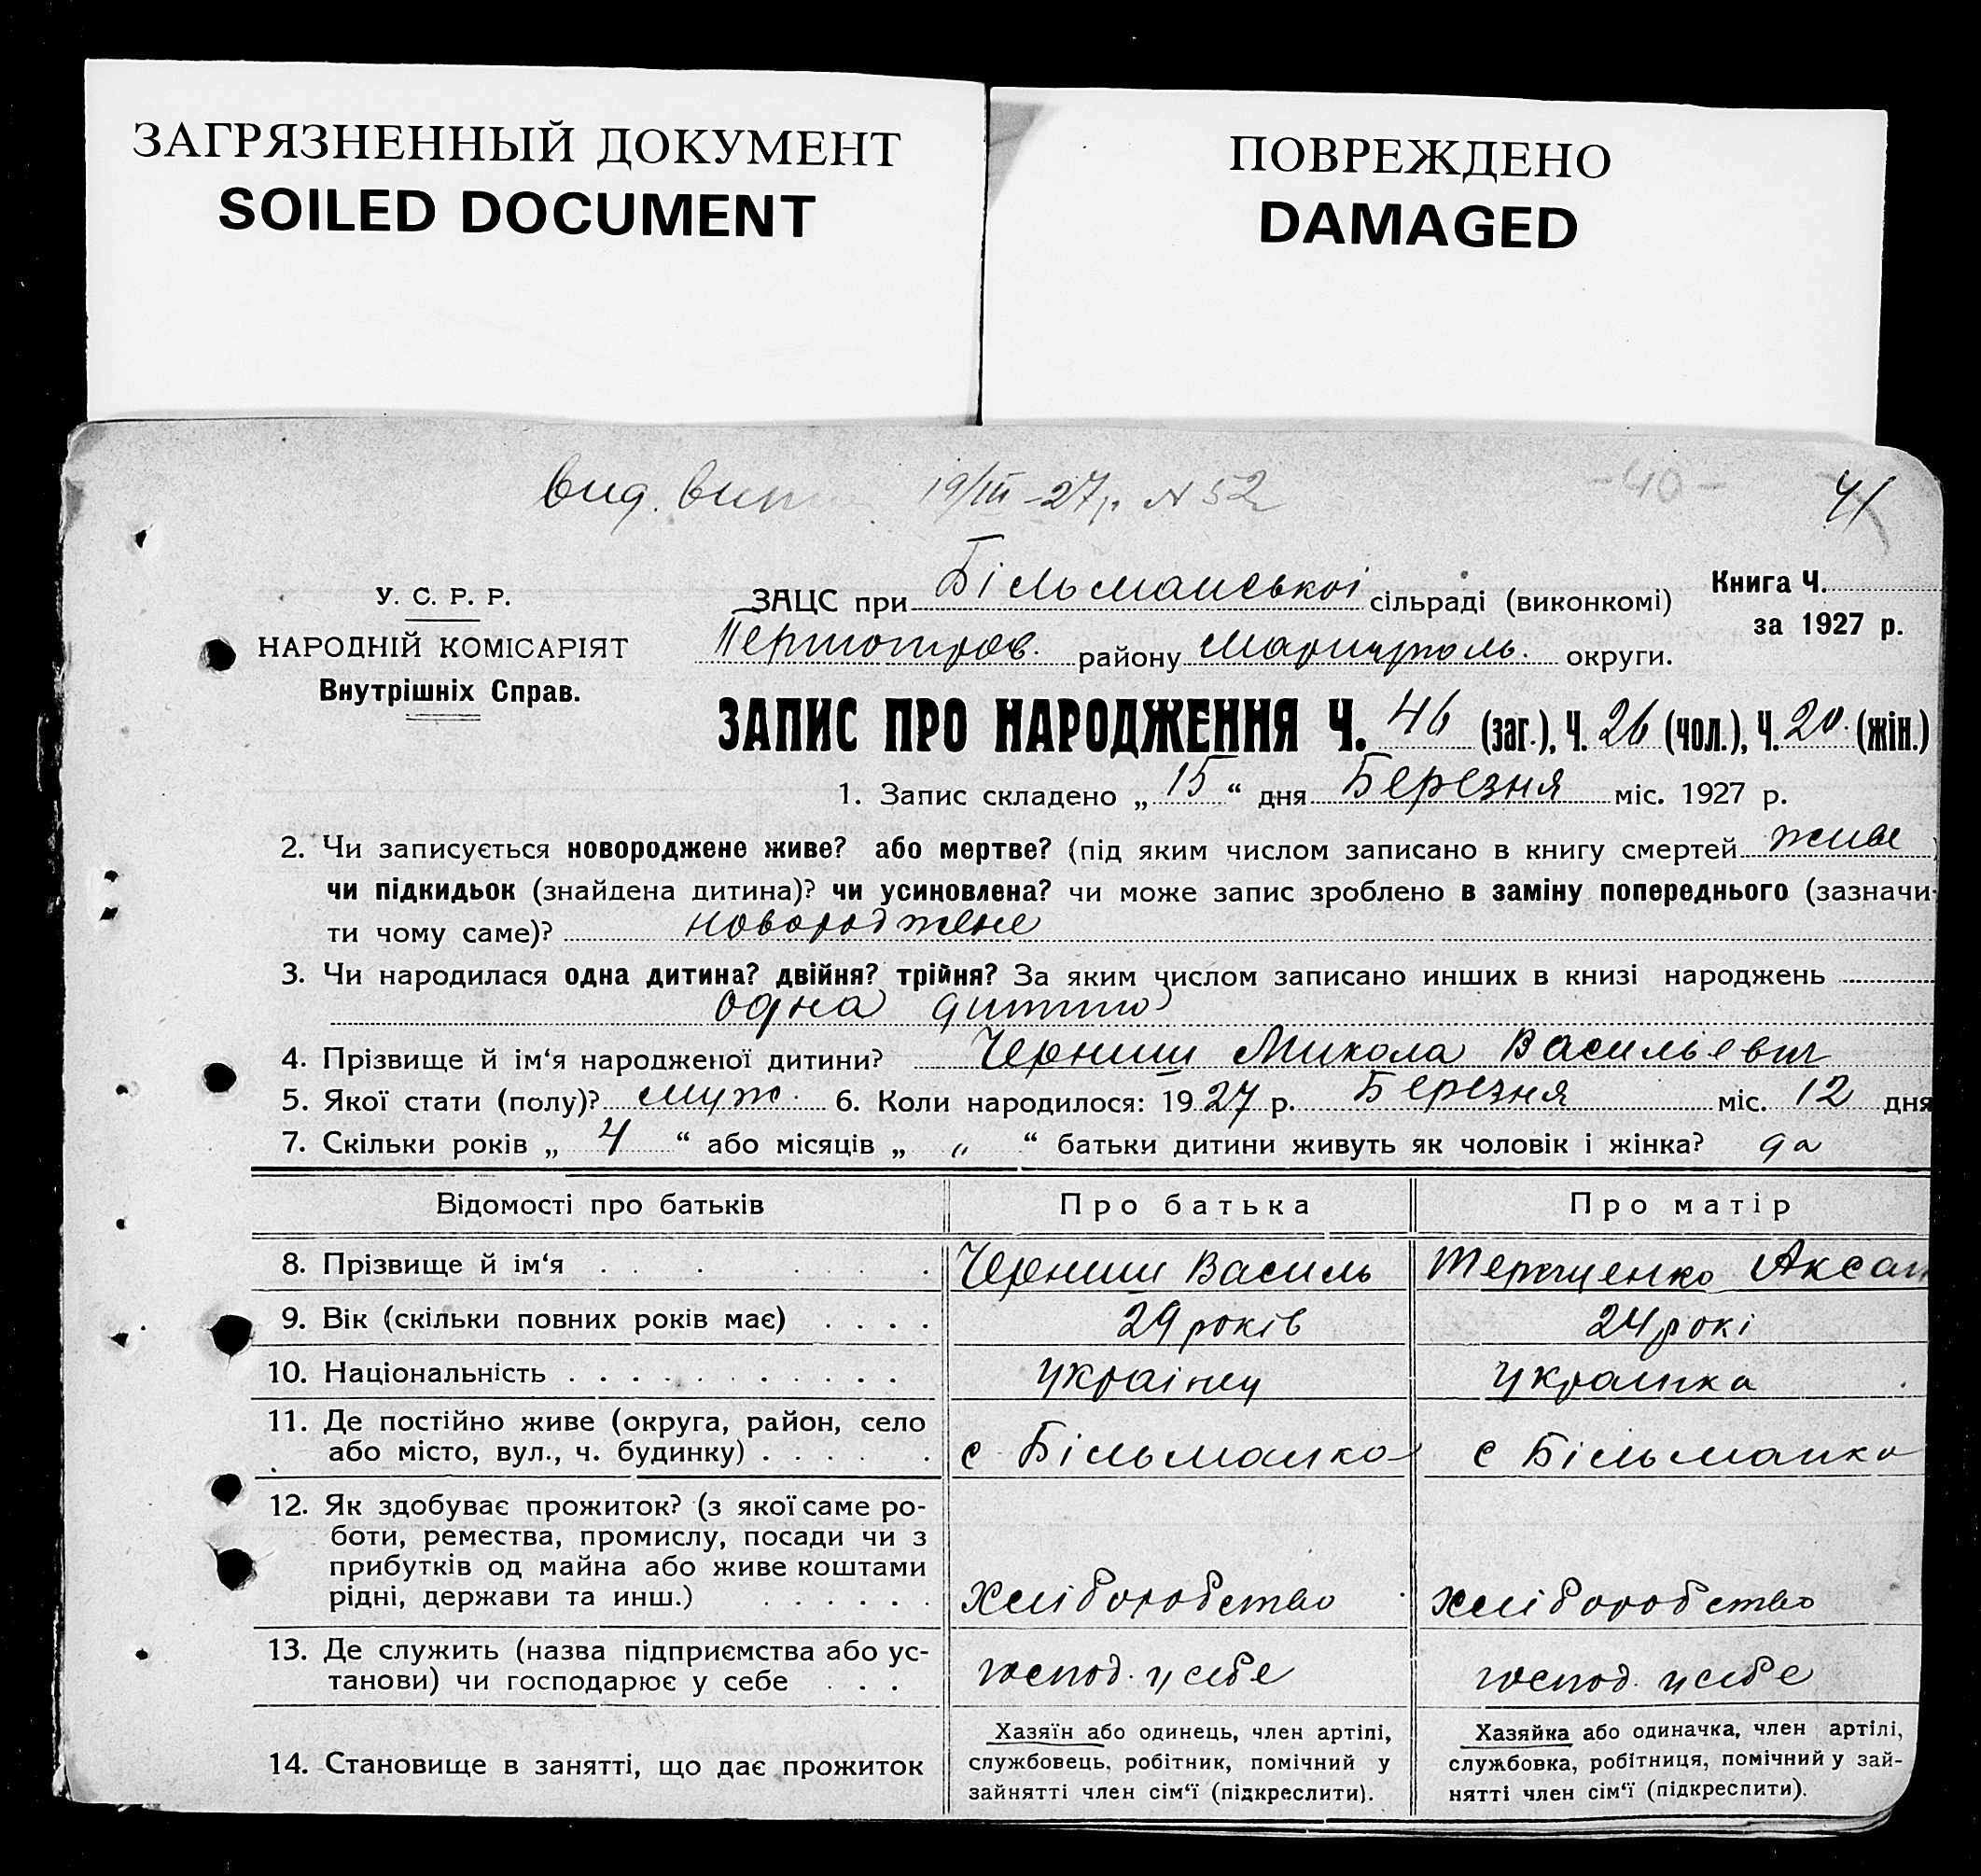 ЗАГРЯЗНЕННЫЙ ДОКУМЕНТ
SOILED DOCUMENT
ПОВРЕЖДЕНО
DAMAGED
вид. вип 19/III-27р. N 52
-40-
41
У. С. Р. Р.
НАРОДНІЙ КОМІСАРІЯТ
Внутрішніх Справ.
ЗАЦС при Більманської сільраді (виконкомі)
Книга Ч.
за 1927 р.
району Маріуполь. округи.
ЗАПИС ПРО НАРОДЖЕННЯ Ч. 46 (заг.), Ч. 26 (чол.), Ч. 20. (жін.)
1. Запис складено „ 15 “ дня Березня міс. 1927 р.
2. Чи записується новороджене живе? або мертве? (під яким числом записано в книгу смертей живе )
чи підкидьок (знайдена дитина)? чи усиновлена? чи може запис зроблено в заміну попереднього (зазначи-
ти чому саме)? новорожене
3. Чи народилася одна дитина? двійня? трійня? За яким числом записано инших в книзі народжень
одна
4. Прізвище й ім‘я народженої дитини? Черниш Микола Васильевич
5. Якої стати (полу)? муж. 6. Коли народилося: 1927 р. Березня міс. 12 дня
7. Скільки років „ 4 “ або місяців „ „ “ батьки дитини живуть як чоловік і жінка? да
Відомості про батьків Про батька Про матір
8. Прізвище й ім‘я . . . . . . . Черниш Василь Терещенко Аксан
9. Вік (скільки повних років має) . . . . 29 років 24 рокі
10. Національність . . . . . . . . . . . українец украинка
11. Де постійно живе (округа, район, село
або місто, вул., ч. будинку) . . . . . . с Більманка с Більманка
12. Як здобуває прожиток? (з якої саме ро-
боти, ремества, промислу, посади чи з
прибутків од майна або живе коштами
рідні, держави та инш.) . . . . . . Хліборобство хліборобство
13. Де служить (назва підприємства або ус-
танови) чи господарює у себе . . . господ. у себе господ. у себе
14. Становище в занятті, що дає прожиток
Хазяїн або одинець, член артілі,
службовець, робітник, помічний у
зайнятті член сім‘ї (підкреслити).
Хазяйка або одиначка, член артілі,
службовка, робітниця, помічний у зай-
нятті член сім‘ї (підкреслити).